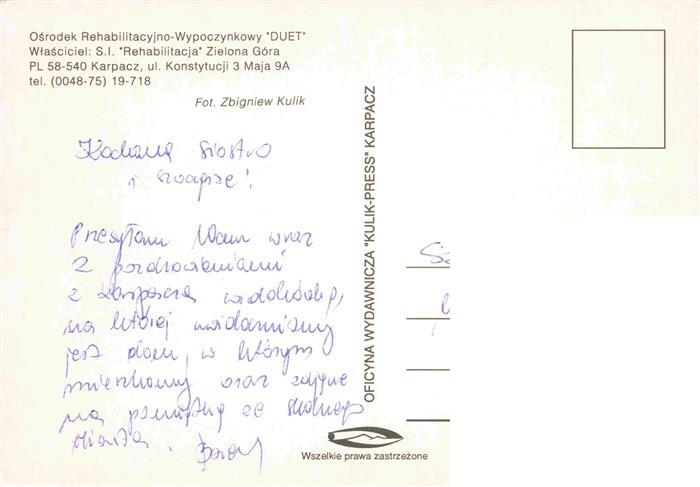 Ośrodek Rehabilitacyjno-Wypoczynkowy "DUET"
Właściciel: S.I. "Rehabilitacja" Zielona Góra
PL 58-540 Karpacz, ul. Konstytucji 3 Maja 9A
tel. (0048-75) 19-718
Fot. Zbigniew Kulik
Kochana Siostro
i szwagrze!
Przesyłam Wam wraz
z pozdrowieniami
z Karpacza widokówkę,
na której uwidoczniony
jest dom, w którym
mieszkamy oraz zdjęcie
na pamiątkę ze
miasta.
OFICYNA WYDAWNICZA "KULIK-PRESS" KARPACZ
Wszelkie prawa zastrzeżone